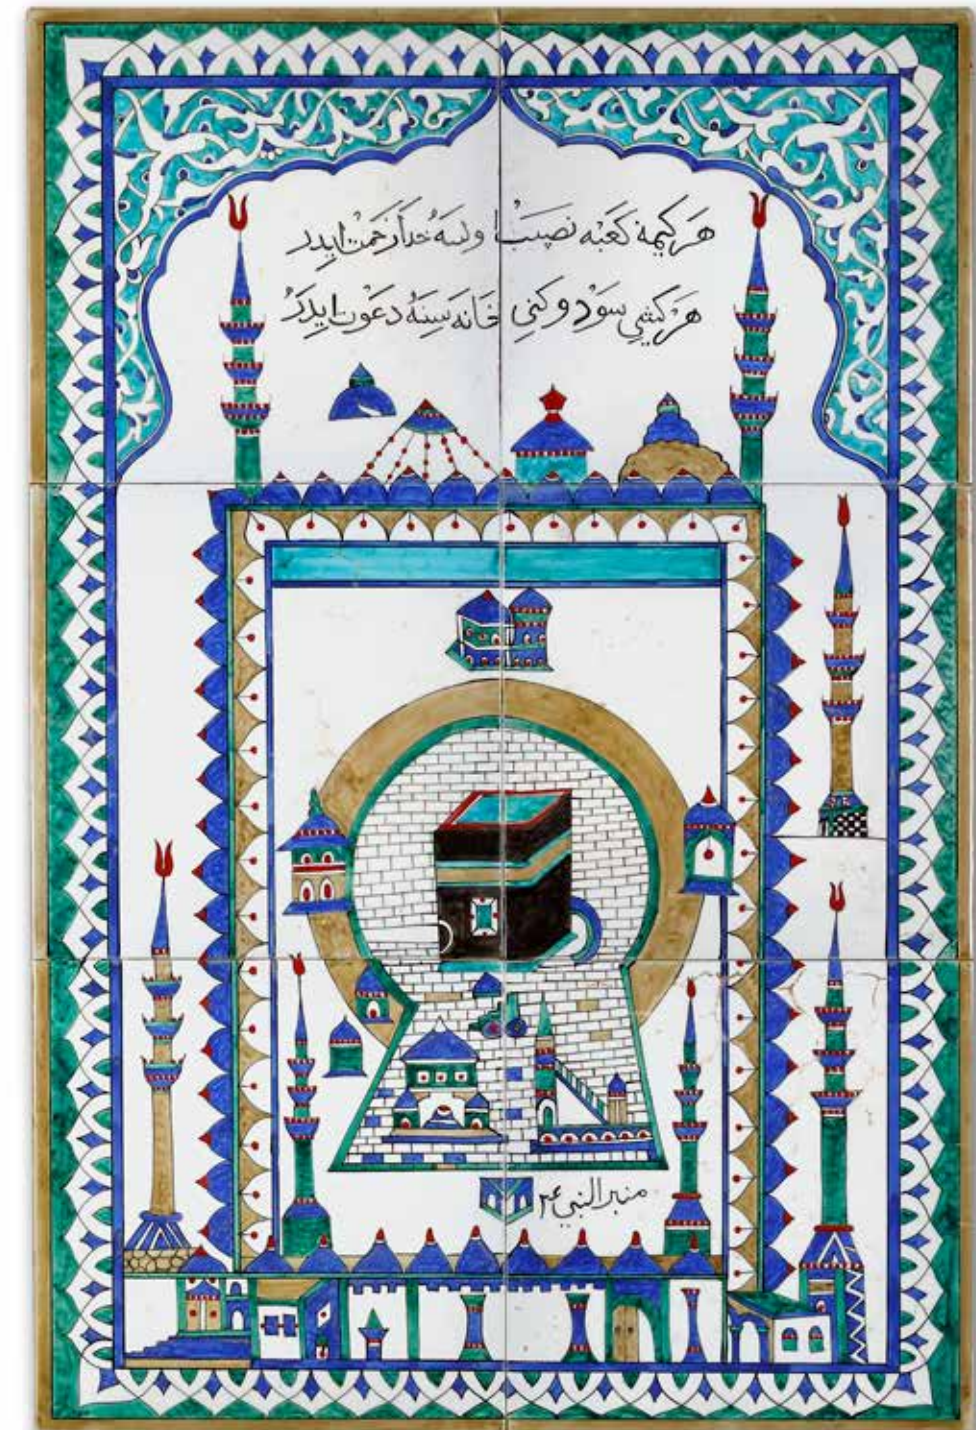 هَر كيمَه كَعْبَه نصيبْ اولسَه خدا رَحْمَتْ ايدر
هَر كيشي سَوْدوكني خَانَه سِنَه دَعْوت ايدَرُ
منبر النبي